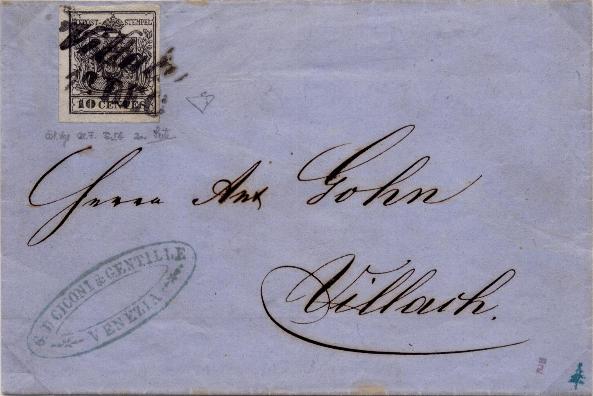 POST-STEMPEL
10 CENTES
Villach
Herrn Ant Gohn
Villach.
G. F. CICONI & GENTILLE
VENEZIA